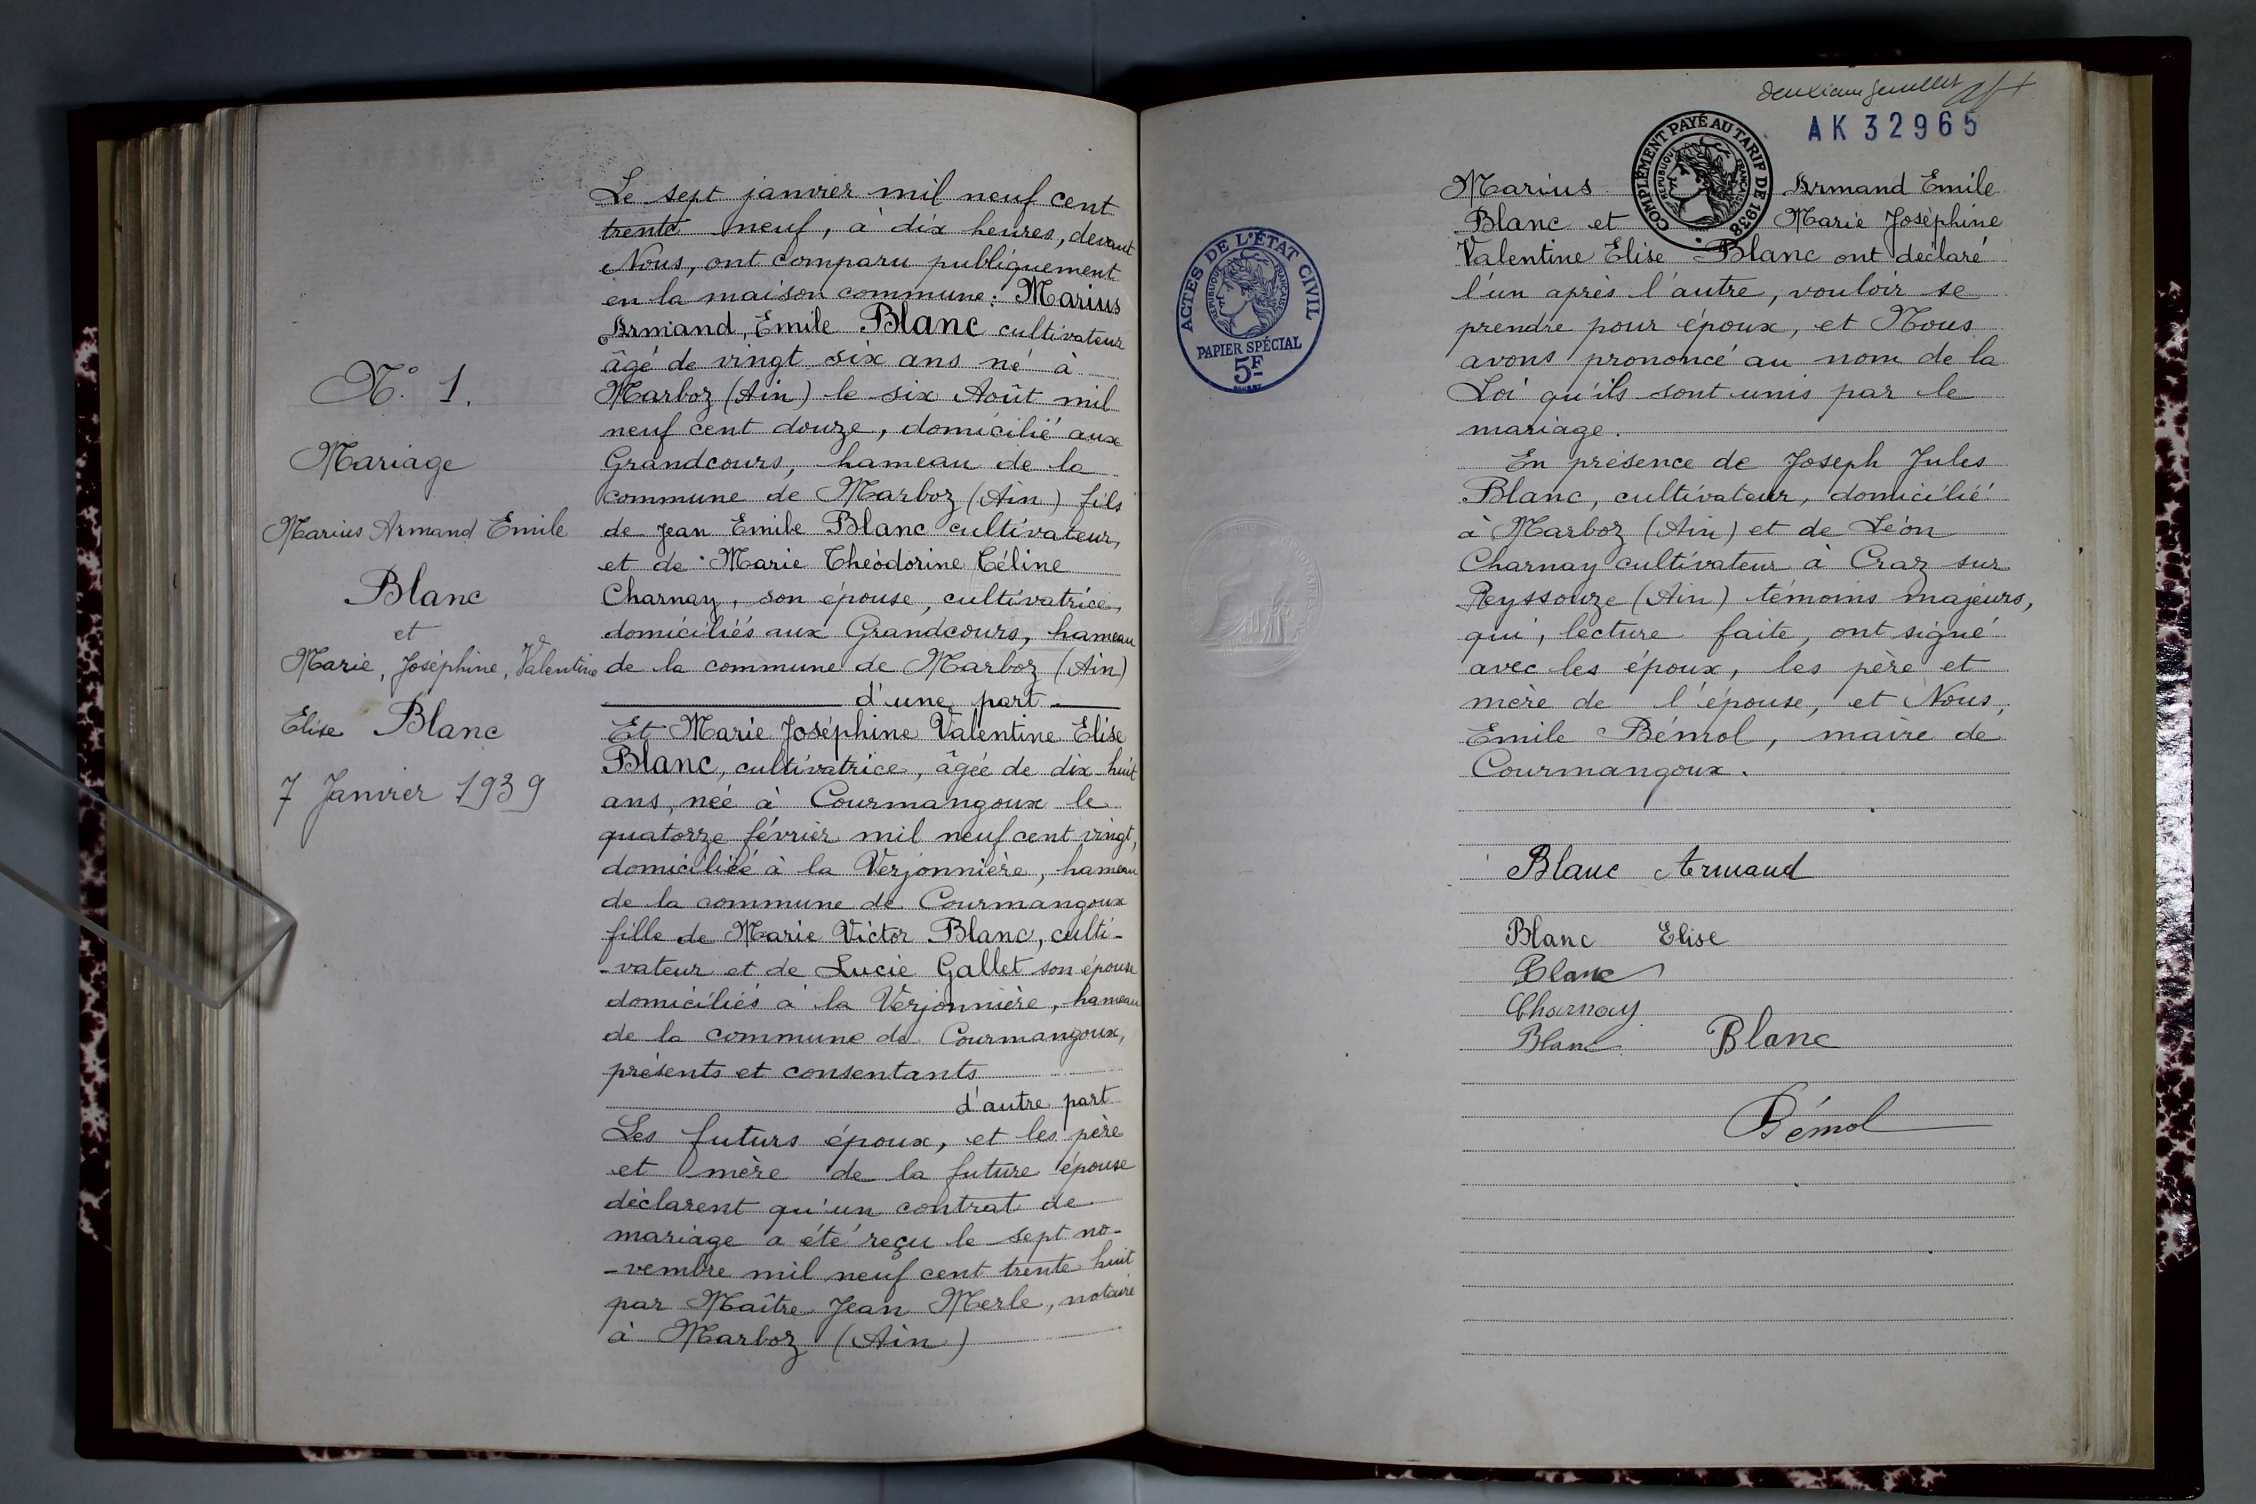 N° 1.
Mariage
Marius Armand Emile
Blanc
et
Marie, Joséphine, Valentine
Elise Blanc
7 Janvier 1939
Le sept janvier mil neuf cent
trente neuf, à dix heures, devant
Nous, ont comparu publiquement
en la maison commune: Marius
Armand, Emile Blanc cultivateur
âgé de vingt six ans né à
Marboz (Ain) le six Août mil
neuf cent douze, domicilié aux
Grandcours, hameau de la
commune de Marboz (Ain) fils
de Jean Emile Blanc cultivateur,
et de Marie Théodorine Céline
Charnay, son épouse, cultivatrice,
domiciliés aux Grandcours, hameau
de la commune de Marboz (Ain)
d'une part
Et Marie Joséphine Valentine Elise
Blanc, cultivatrice, âgée de dix-huit
ans, née à Courmangoux le
quatorze février mil neuf cent vingt,
domiciliée à la Verjonnière, hameau
de la commune de Courmangoux
fille de Marie Victor Blanc, culti-
-vateur et de Lucie Gallet son épouse
domiciliés à la Verjonnière, hameau
de la commune de Courmangoux,
présents et consentants
d'autre part
Les futurs époux, et les père
et mère de la future épouse
déclarent qu'un contrat de
mariage a été reçu le sept no-
-vembre mil neuf cent trente huit
par Maître Jean Merle, notaire
à Marboz (Ain)
deuxième feuillet
AK 32965
COMPLÉMENT PAYÉ AU TARIF DE 1938
REPUBLIQUE FRANCAISE
ACTES DE L'ÉTAT CIVIL
REPUBLIQUE FRANCAISE
PAPIER SPÉCIAL
5F
Marius Armand Emile
Blanc et Marie Joséphine
Valentine Elise Blanc ont déclaré
l'un après l'autre, vouloir se
prendre pour époux, et Nous
avons prononcé au nom de la
Loi qu'ils sont unis par le
mariage.
En présence de Joseph Jules
Blanc, cultivateur, domicilié
à Marboz (Ain) et de Léon
Charnay cultivateur à Craz sur
Reyssouze (Ain) témoins majeurs,
qui, lecture faite, ont signé
avec les époux, les père et
mère de l'épouse, et Nous,
Emile Bémol, maire de
Courmangoux.
Blanc Armand
Blanc Elise
Blanc
Charnay
Blanc Blanc
Bémol